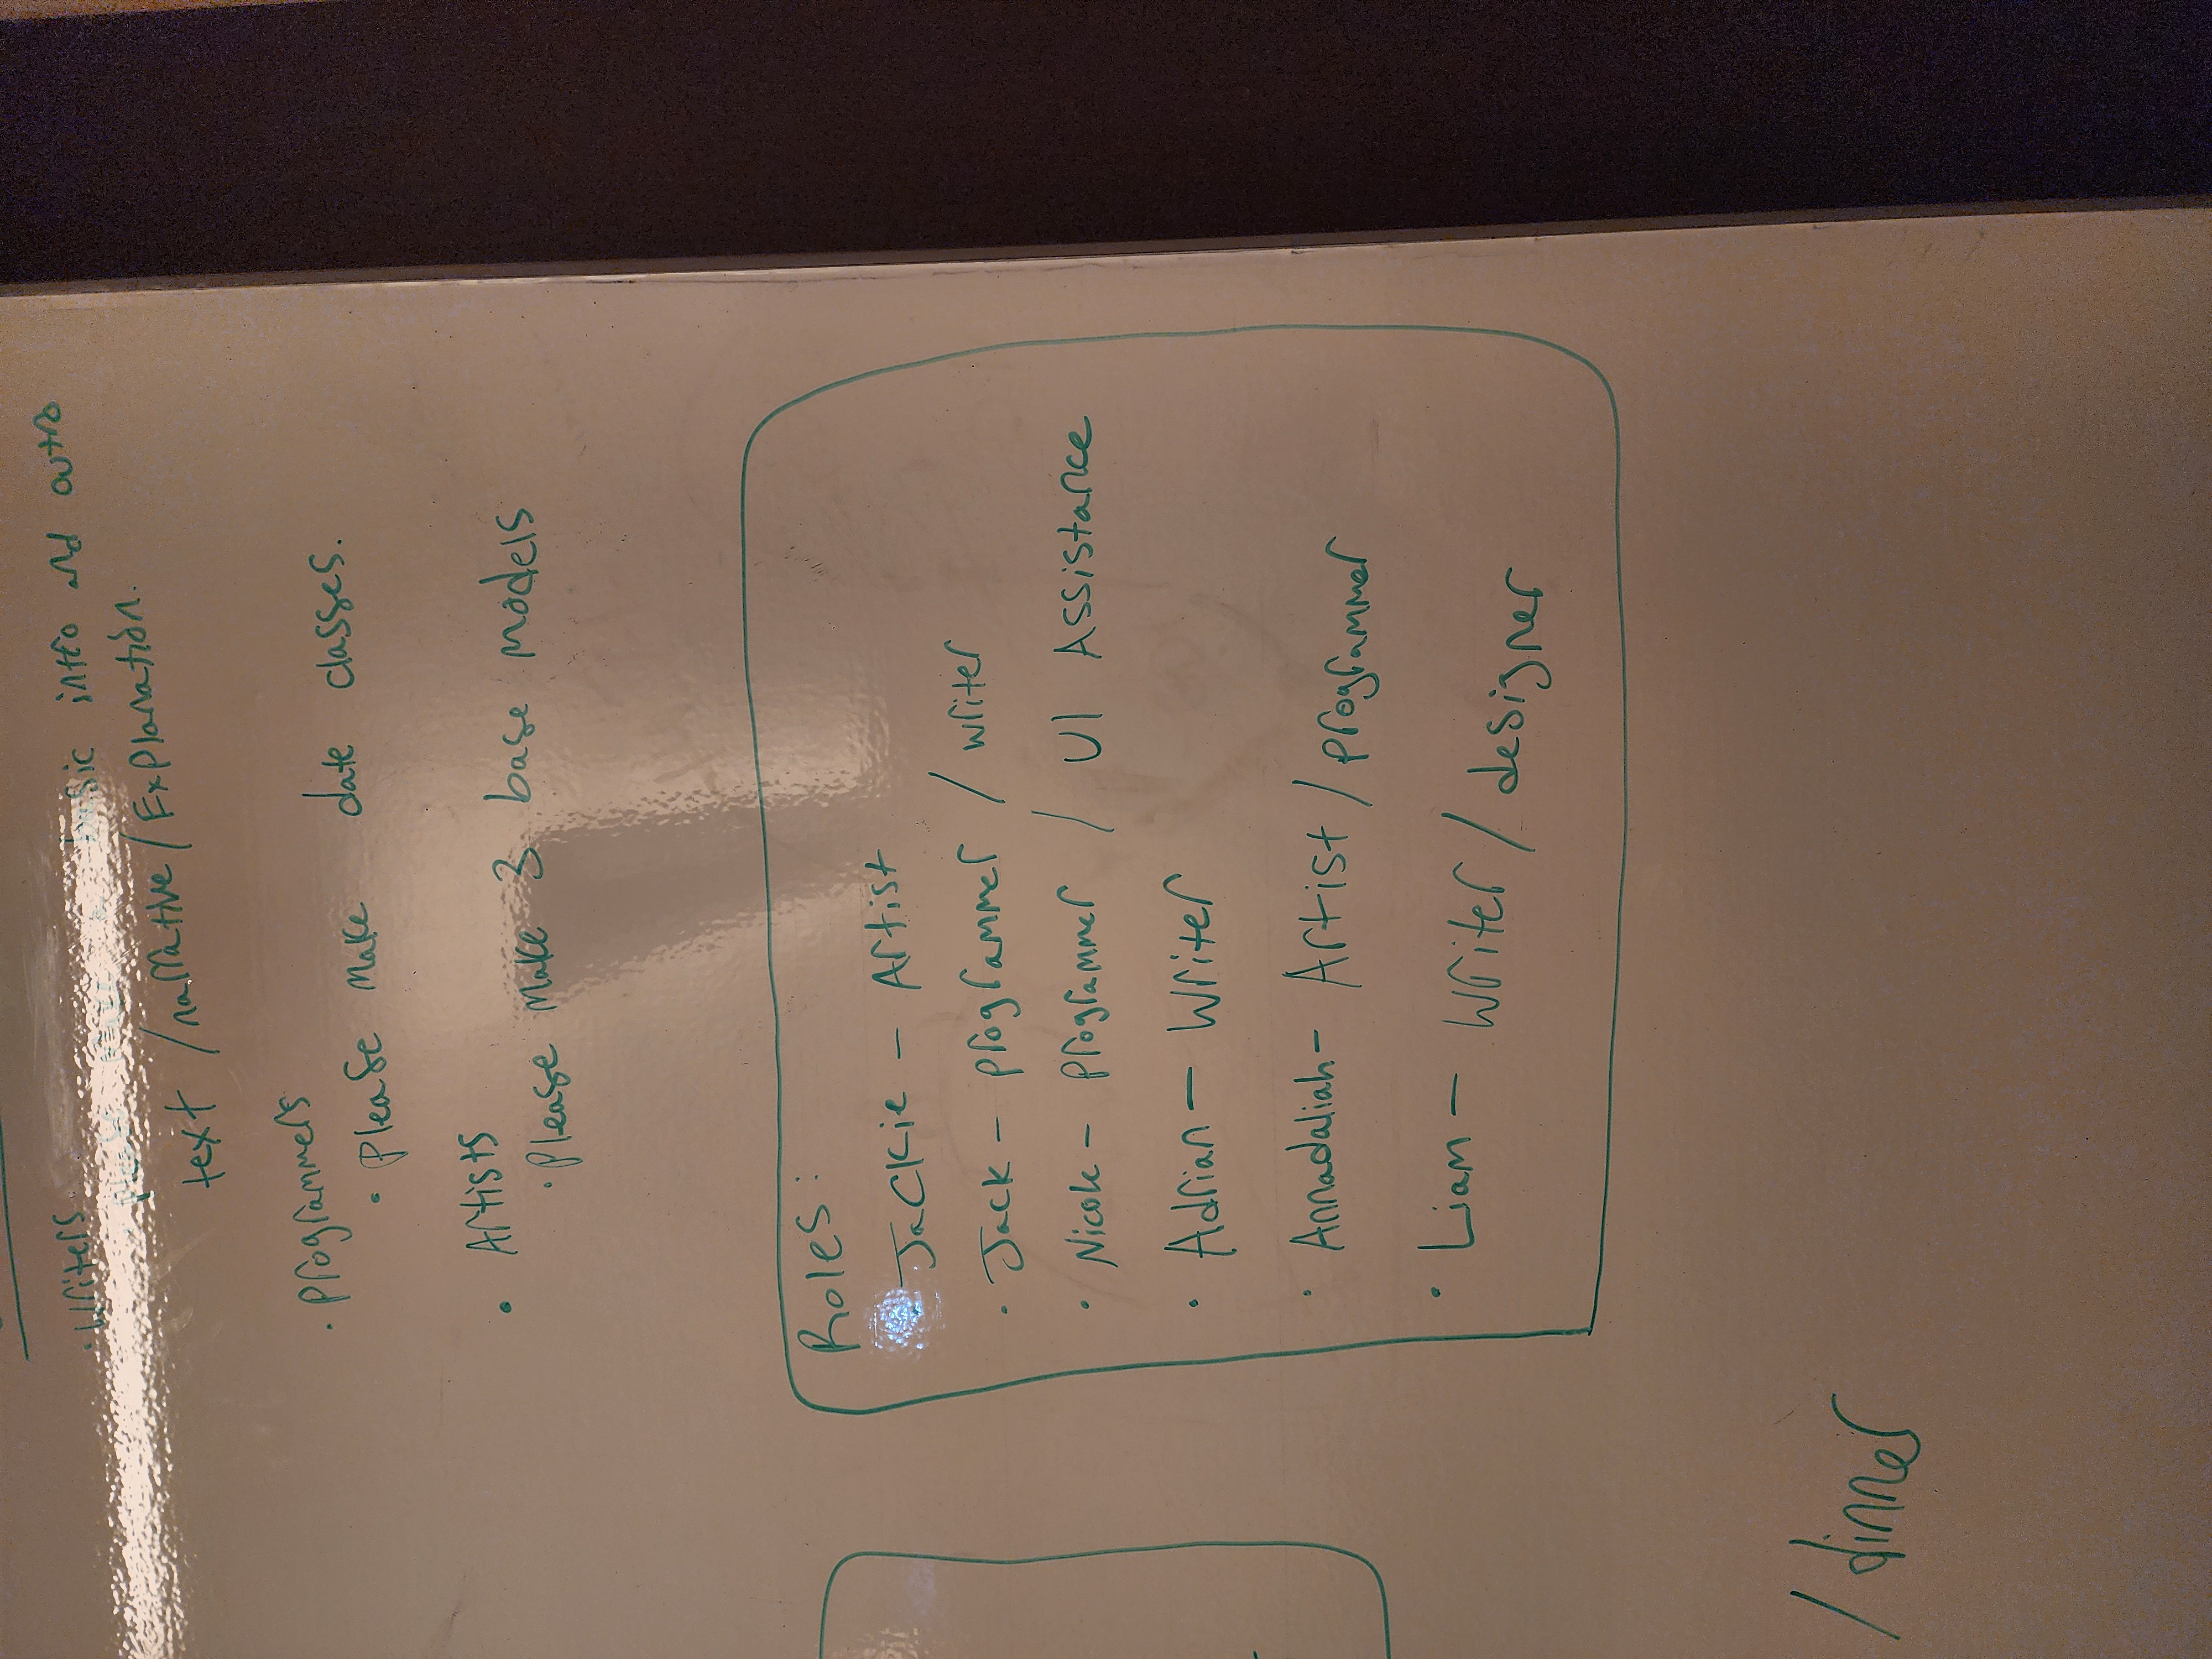 · Writers
· Please make a basic intro and outro
text / narrative / Explanation.
· Programmers
· Please make date classes.
· Artists
· Please make 3 base models
Roles:
· Jackie - Artist
· Jack - programmer / writer
· Nicole - Programmer / UI Assistance
· Adrian - Writer
· Annadaliah - Artist / programmer
· Liam - Writer / designer
/ dinner